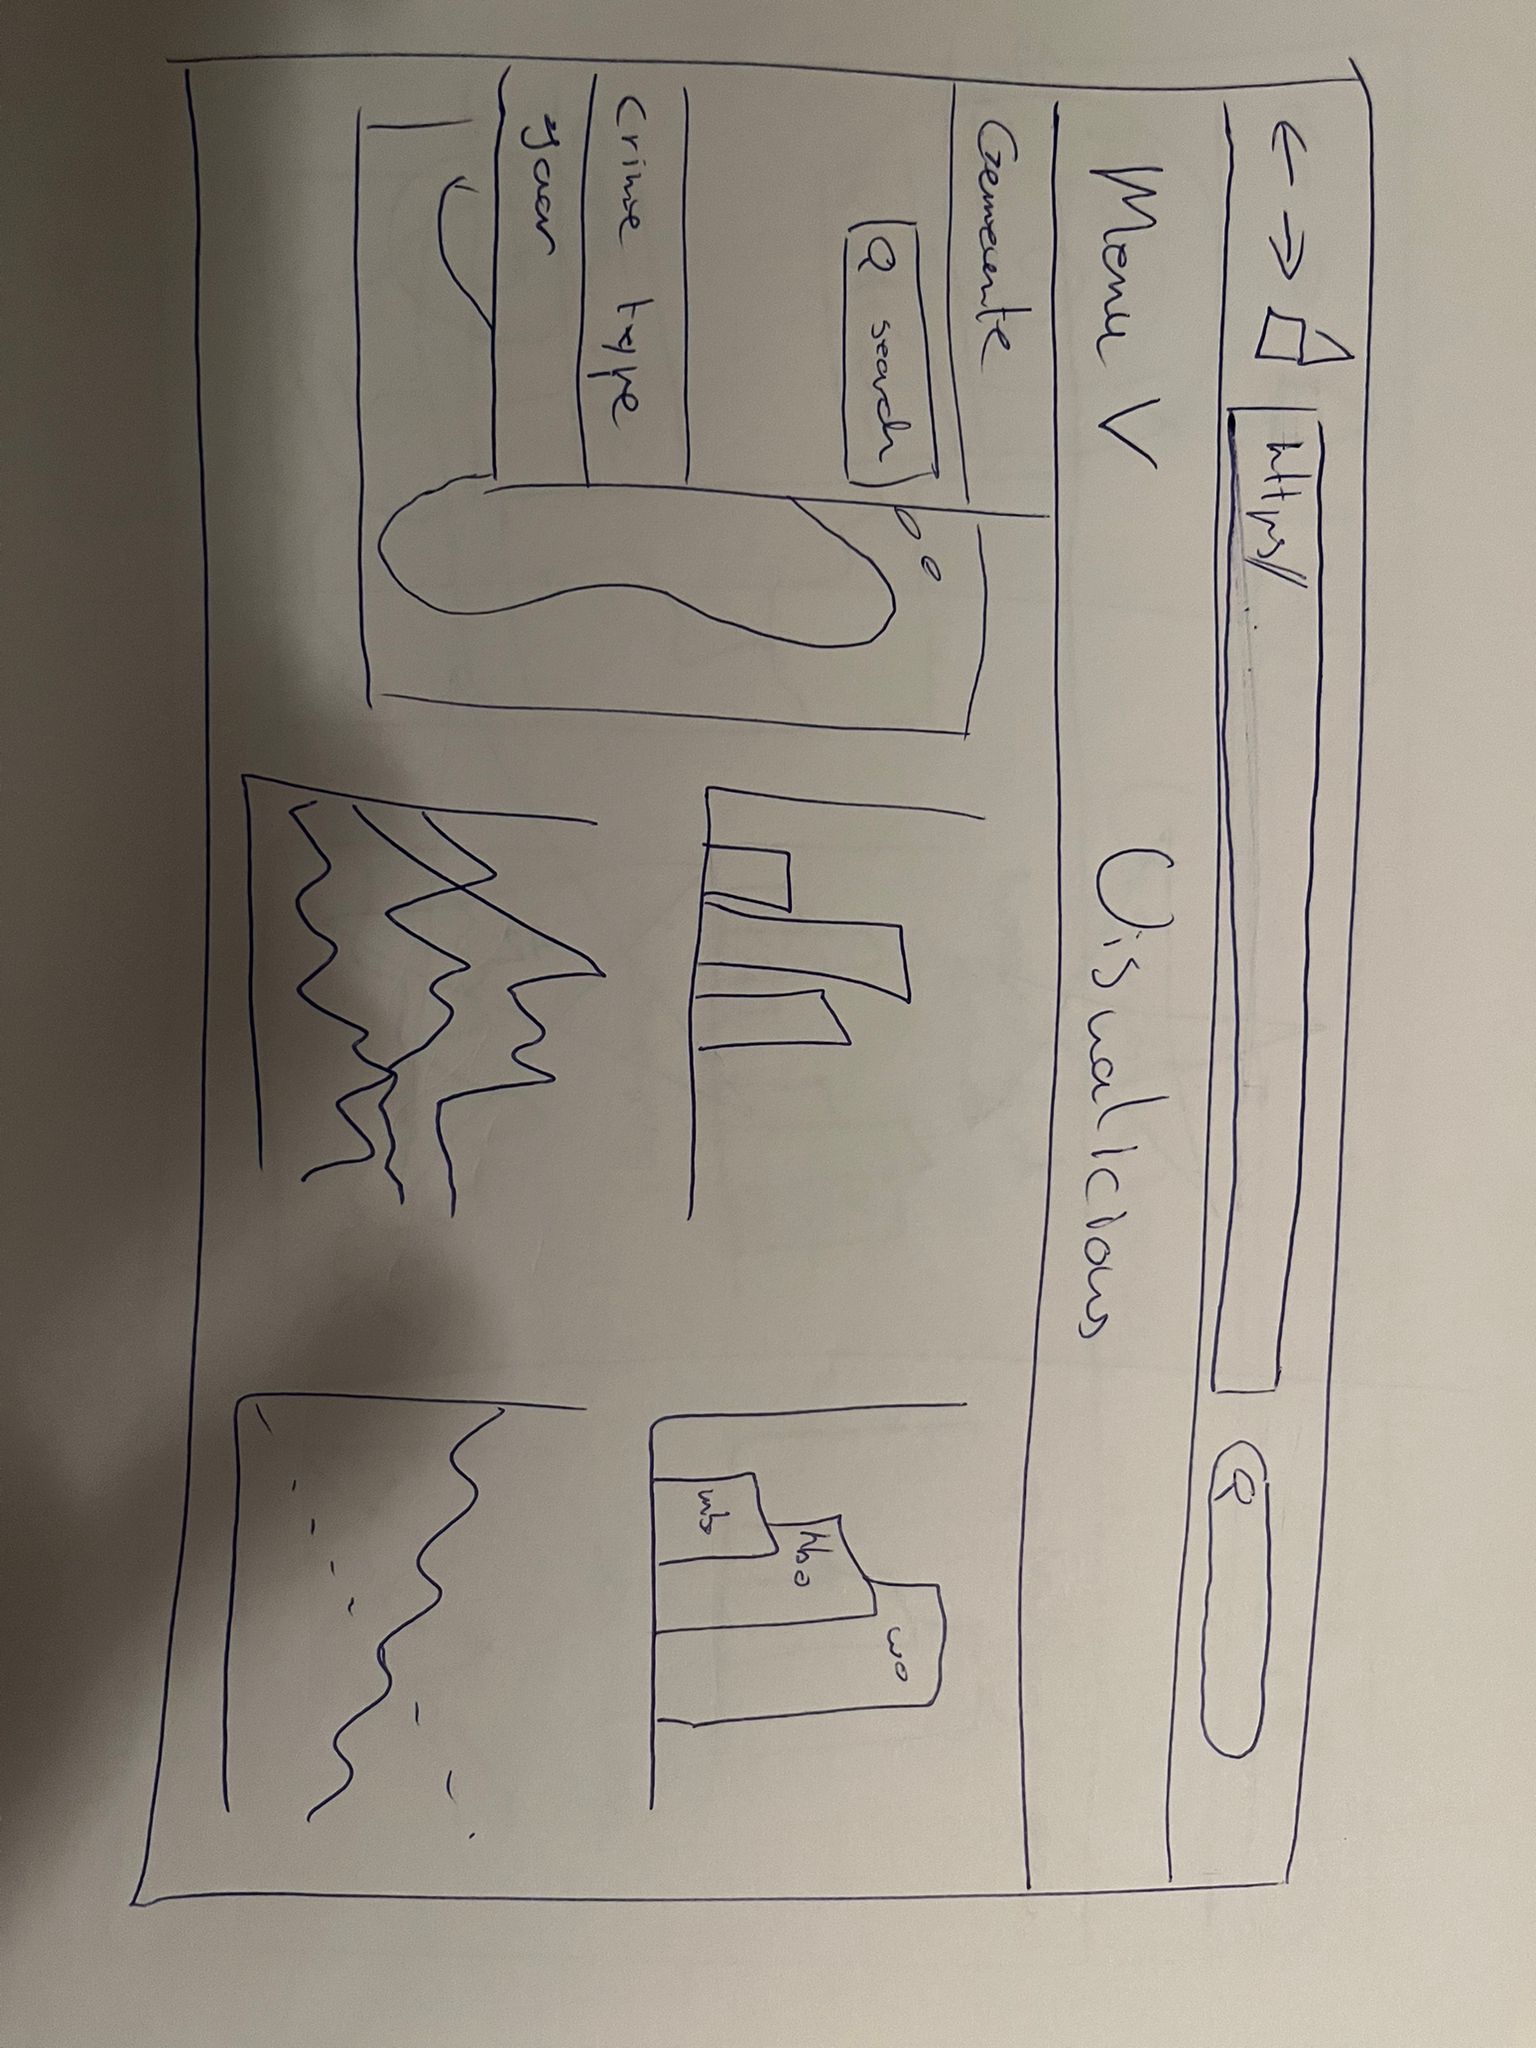 https//
Menu V
Visualicious
Gemeente
search
Crime type
Jaar
mbo
hbo
wo